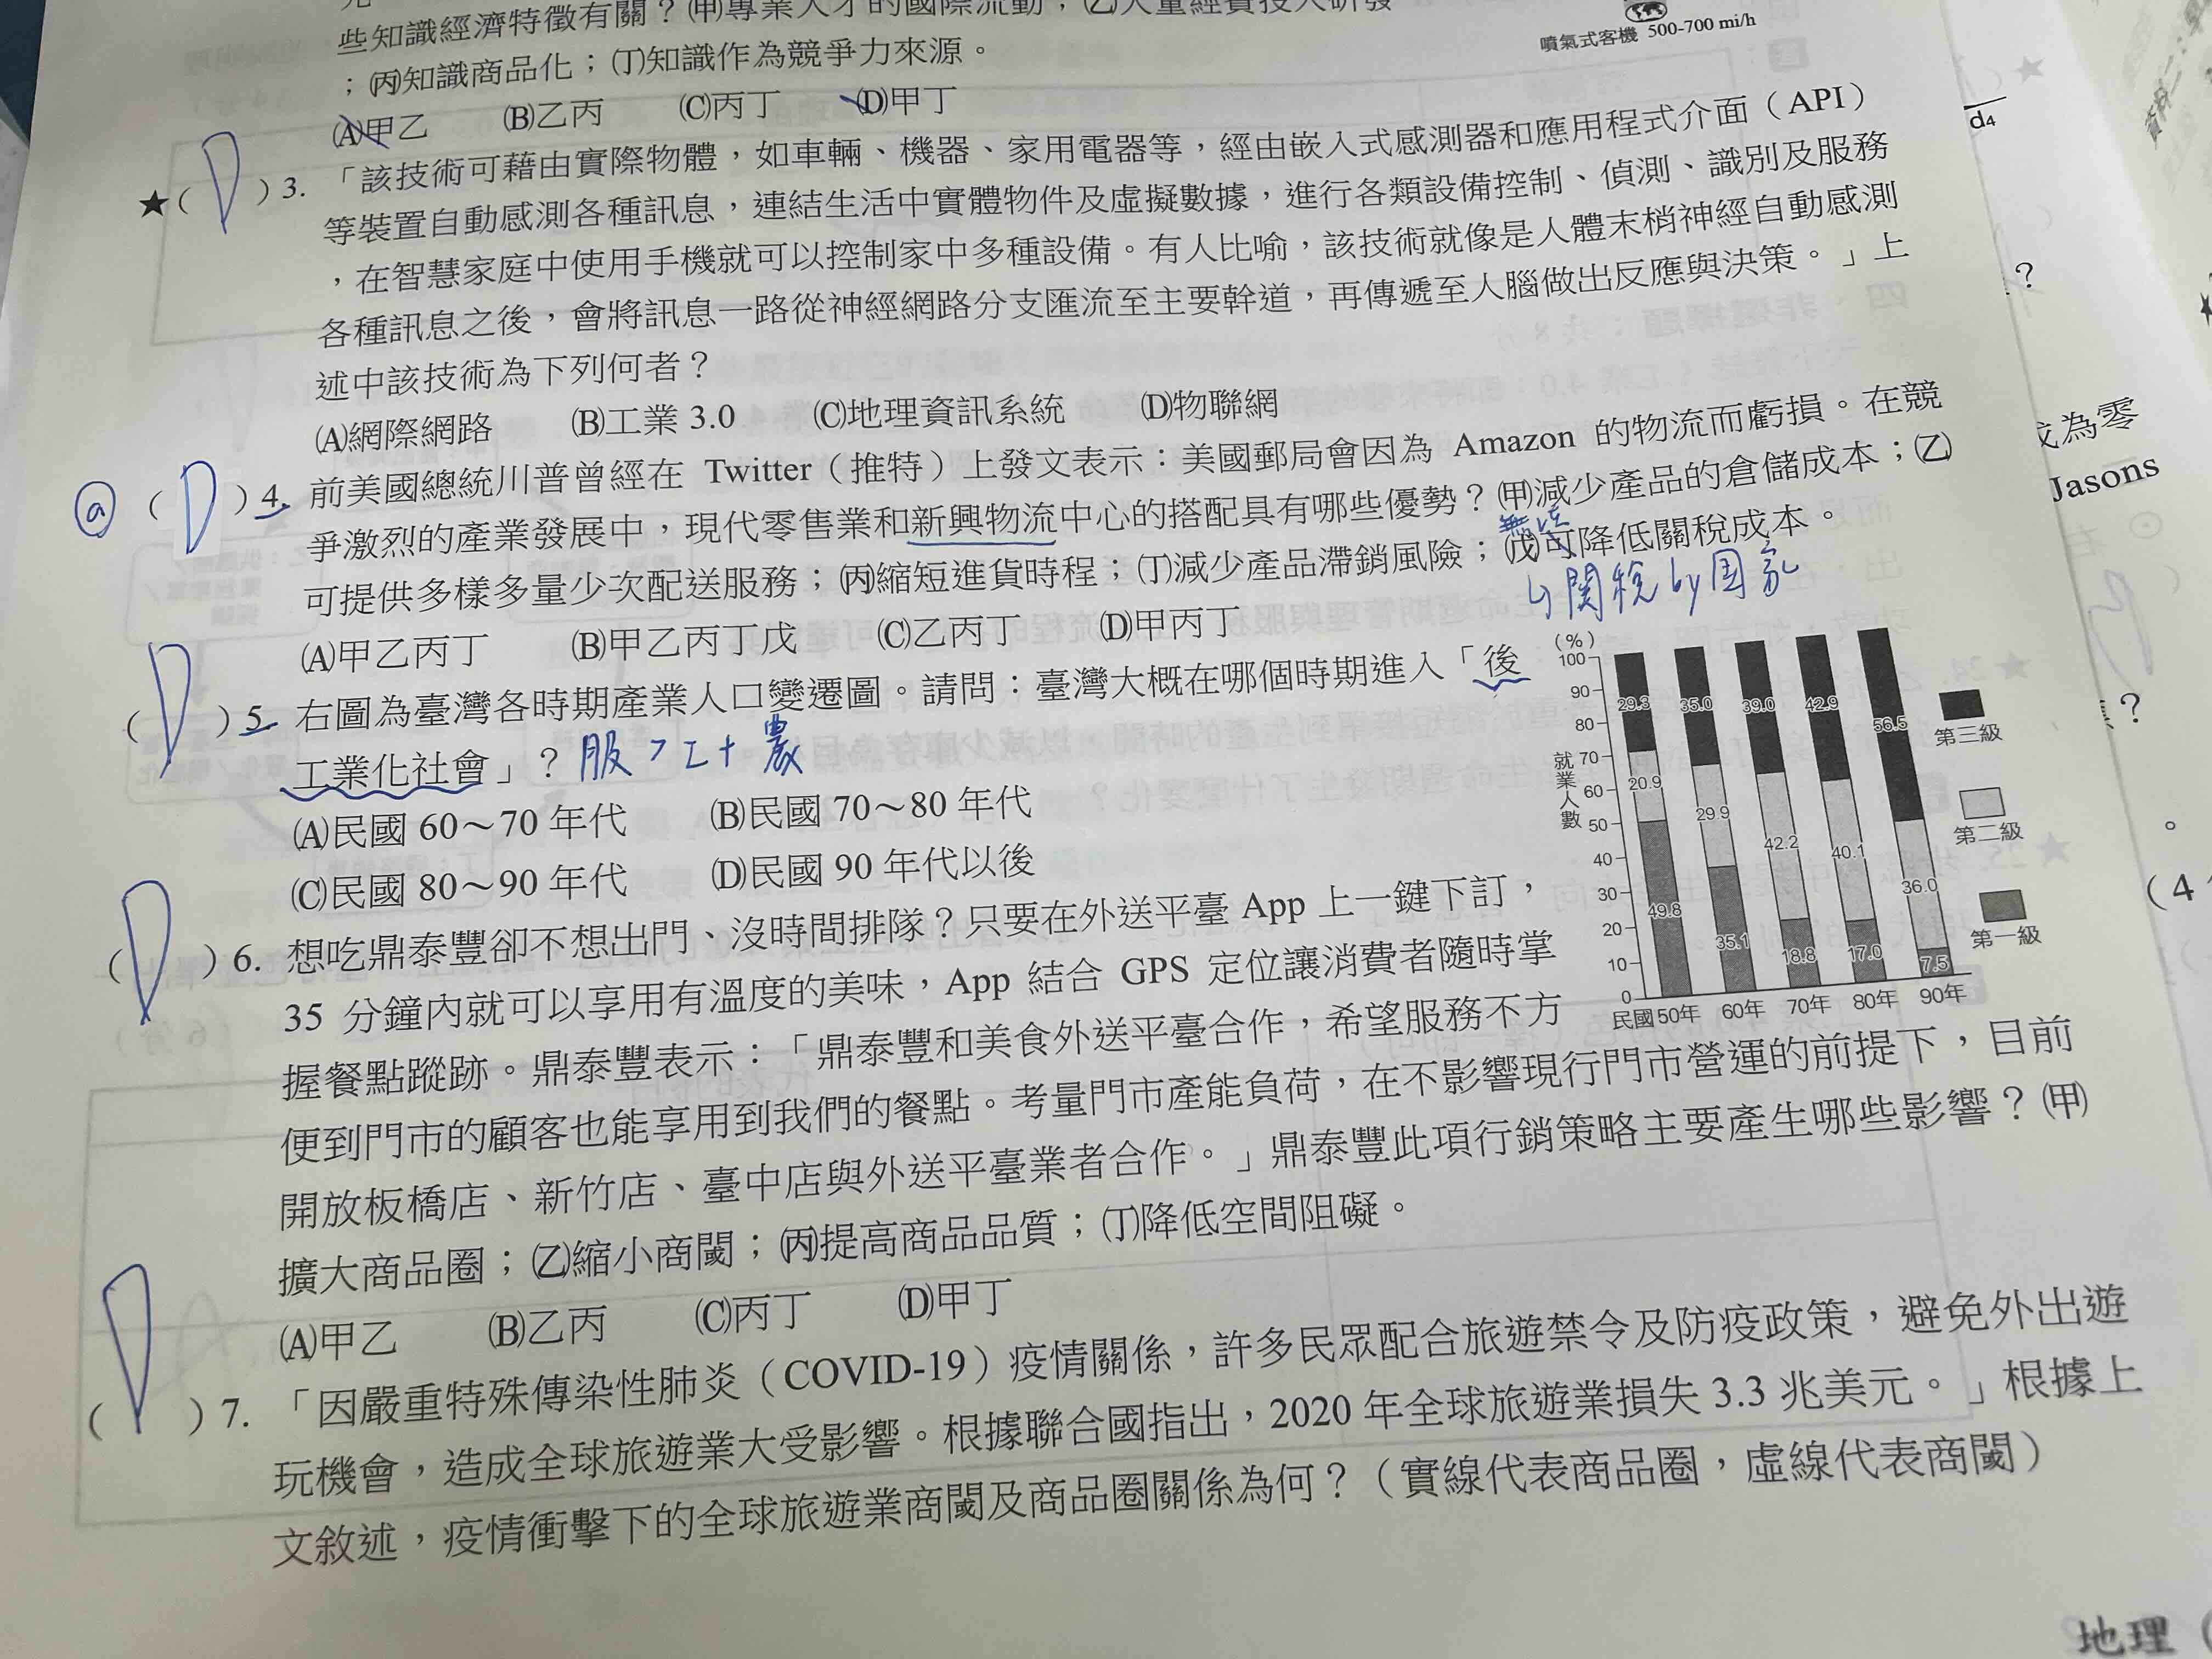 些知識經濟特徵有關？(甲)專業人才的國際流動；(乙)大量經費投入研發
；(丙)知識商品化；(丁)知識作為競爭力來源。
(A)甲乙 (B)乙丙 (C)丙丁 (D)甲丁
噴氣式客機 500-700 mi/h
★( D )3. 「該技術可藉由實際物體，如車輛、機器、家用電器等，經由嵌入式感測器和應用程式介面（API）
等裝置自動感測各種訊息，連結生活中實體物件及虛擬數據，進行各類設備控制、偵測、識別及服務
，在智慧家庭中使用手機就可以控制家中多種設備。有人比喻，該技術就像是人體末梢神經自動感測
各種訊息之後，會將訊息一路從神經網路分支匯流至主要幹道，再傳遞至人腦做出反應與決策。」上
述中該技術為下列何者？
(A)網際網路 (B)工業 3.0 (C)地理資訊系統 (D)物聯網
ⓐ ( D )4. 前美國總統川普曾經在 Twitter（推特）上發文表示：美國郵局會因為 Amazon 的物流而虧損。在競
爭激烈的產業發展中，現代零售業和新興物流中心的搭配具有哪些優勢？(甲)減少產品的倉儲成本；(乙)
無法
可提供多樣多量少次配送服務；(丙)縮短進貨時程；(丁)減少產品滯銷風險；(戊)可降低關稅成本。
↳關稅 by 国家
(A)甲乙丙丁 (B)甲乙丙丁戊 (C)乙丙丁 (D)甲丙丁
( D )5. 右圖為臺灣各時期產業人口變遷圖。請問：臺灣大概在哪個時期進入「後
工業化社會」？ 服 > 工 + 農
(A)民國 60～70 年代 (B)民國 70～80 年代
(C)民國 80～90 年代 (D)民國 90 年代以後
(%)
100
90
80
70
60
50
40
30
20
10
0
就業人數
29.3 35.0 39.0 42.9 56.5
20.9 29.9 42.2 40.1 36.0
49.8 35.1 18.8 17.0 7.5
民國50年 60年 70年 80年 90年
第三級
第二級
第一級
( D )6. 想吃鼎泰豐卻不想出門、沒時間排隊？只要在外送平臺 App 上一鍵下訂，
35 分鐘內就可以享用有溫度的美味，App 結合 GPS 定位讓消費者隨時掌
握餐點蹤跡。鼎泰豐表示：「鼎泰豐和美食外送平臺合作，希望服務不方
便到門市的顧客也能享用到我們的餐點。考量門市產能負荷，在不影響現行門市營運的前提下，目前
開放板橋店、新竹店、臺中店與外送平臺業者合作。」鼎泰豐此項行銷策略主要產生哪些影響？(甲)
擴大商品圈；(乙)縮小商閾；(丙)提高商品品質；(丁)降低空間阻礙。
(A)甲乙 (B)乙丙 (C)丙丁 (D)甲丁
( D )7. 「因嚴重特殊傳染性肺炎（COVID-19）疫情關係，許多民眾配合旅遊禁令及防疫政策，避免外出遊
玩機會，造成全球旅遊業大受影響。根據聯合國指出，2020 年全球旅遊業損失 3.3 兆美元。」根據上
文敘述，疫情衝擊下的全球旅遊業商閾及商品圈關係為何？（實線代表商品圈，虛線代表商閾）
d4
？
成為零
Jasons
？
。
(4
地理（